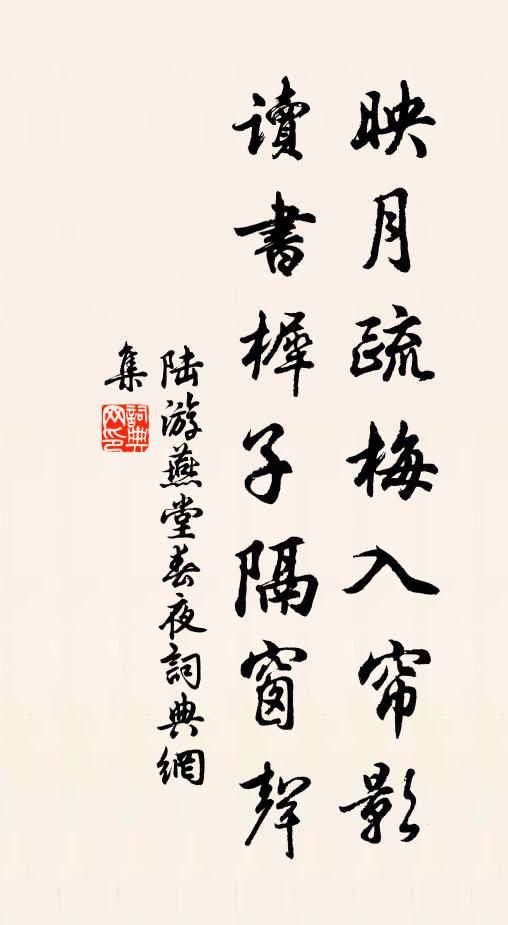 映月疏梅入帘影
讀書穉子隔窗聲
陆游燕堂春夜詞典網
集
詞典网印